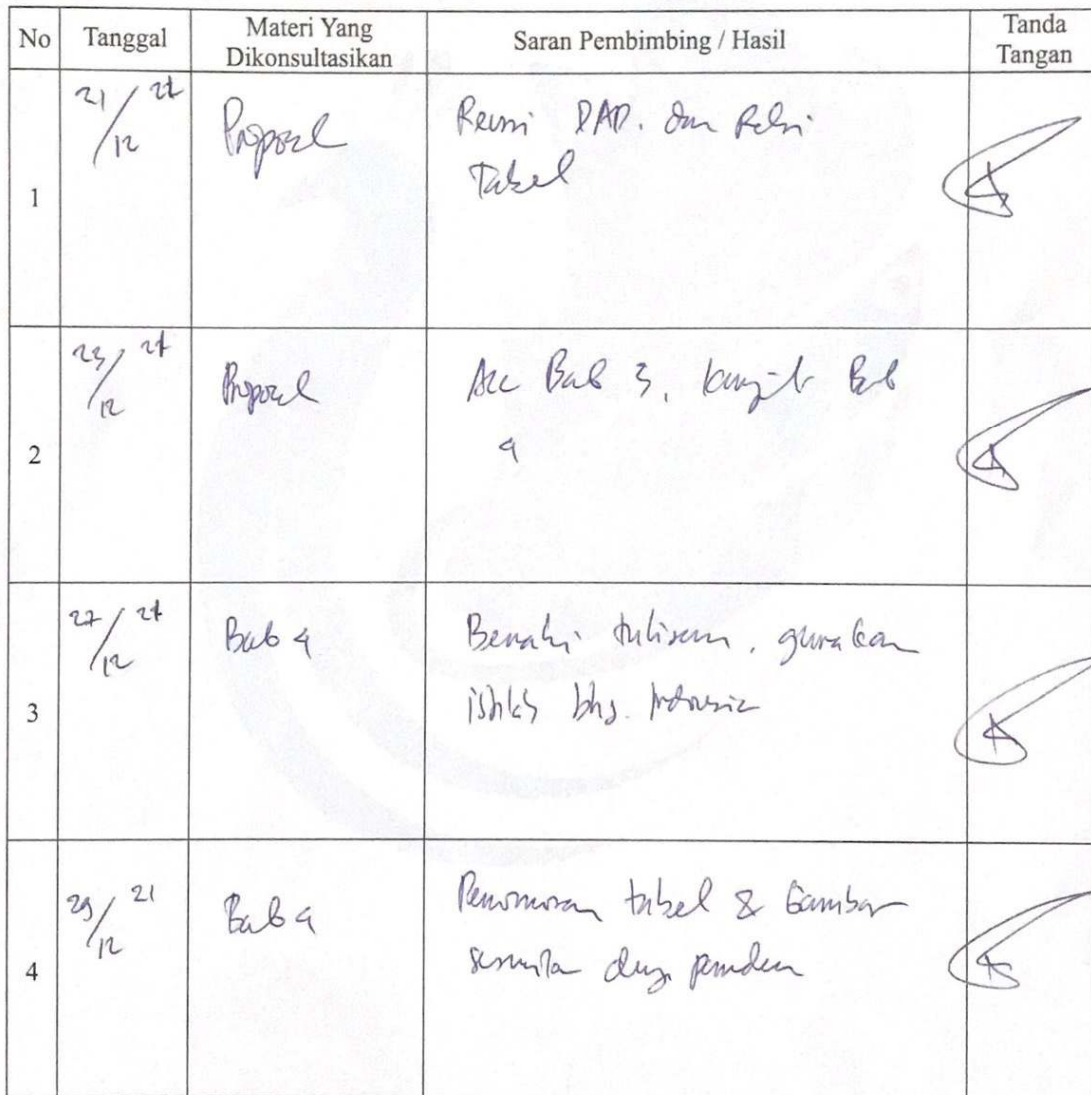 No Tanggal Materi Yang Dikonsultasikan Saran Pembimbing / Hasil Tanda Tangan
1 21/12 Proposal Revisi DAD. dan Relasi
Tabel
2 23/12 Proposal Acc Bab 3, lanjut Bab
4
3 27/12 Bab 4 Benahi tulisan, gunakan
istilah bhs. Indonesia
4 29/12 21 Bab 4 Penomoran tabel & Gambar
sesuaikan dng